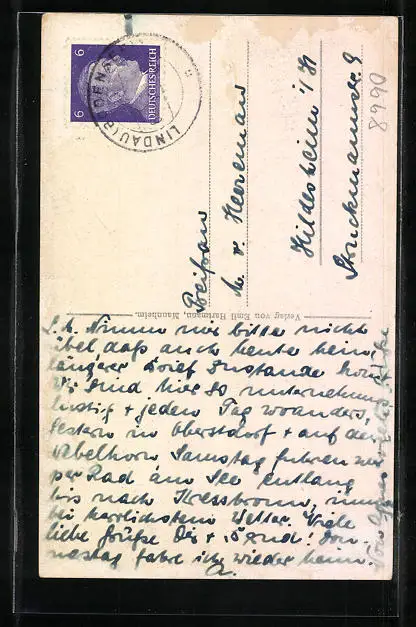 6 DEUTSCHES REICH 6
LINDAU (BODENSEE)
Verlag von Emil Hartmann, Mannheim.
8990
Hildesheim i/H
Struckmannstr. 9
L. M. Nimm mir bitte nicht
übel, daß auch heute kein
längerer Brief zustande kommt.
Wir sind hier so unternehmungs-
lustig + jeden Tag woanders,
gestern in Oberstdorf + auf dem
Nebelhorn. Samstag fuhren wir
per Rad am See entlang
bis nach Kressbronn, immer
bei herrlichstem Wetter. Viele
liebe Grüße Dir + Bernd! Don-
nerstag fahre ich wieder heim.
A.